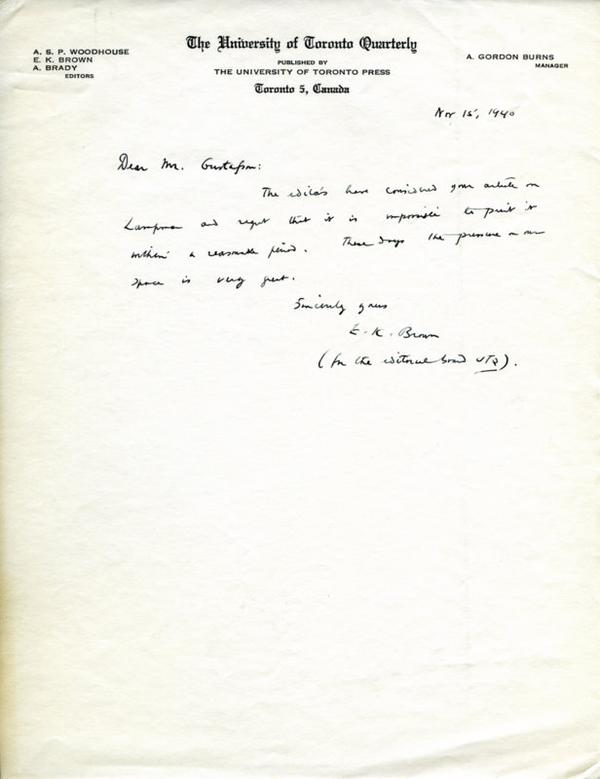 A. S. P. WOODHOUSE
E. K. BROWN
A. BRADY
EDITORS
The University of Toronto Quarterly
PUBLISHED BY
THE UNIVERSITY OF TORONTO PRESS
Toronto 5, Canada
A. GORDON BURNS
MANAGER
Nov 15, 1940
Dear Mr. Gustafson:
The editors have considered your article on
Lampman and regret that it is impossible to print it
within a reasonable period. These days the pressure on our
space is very great.
Sincerely yours
E. K. Brown
(for the editorial board UTQ).